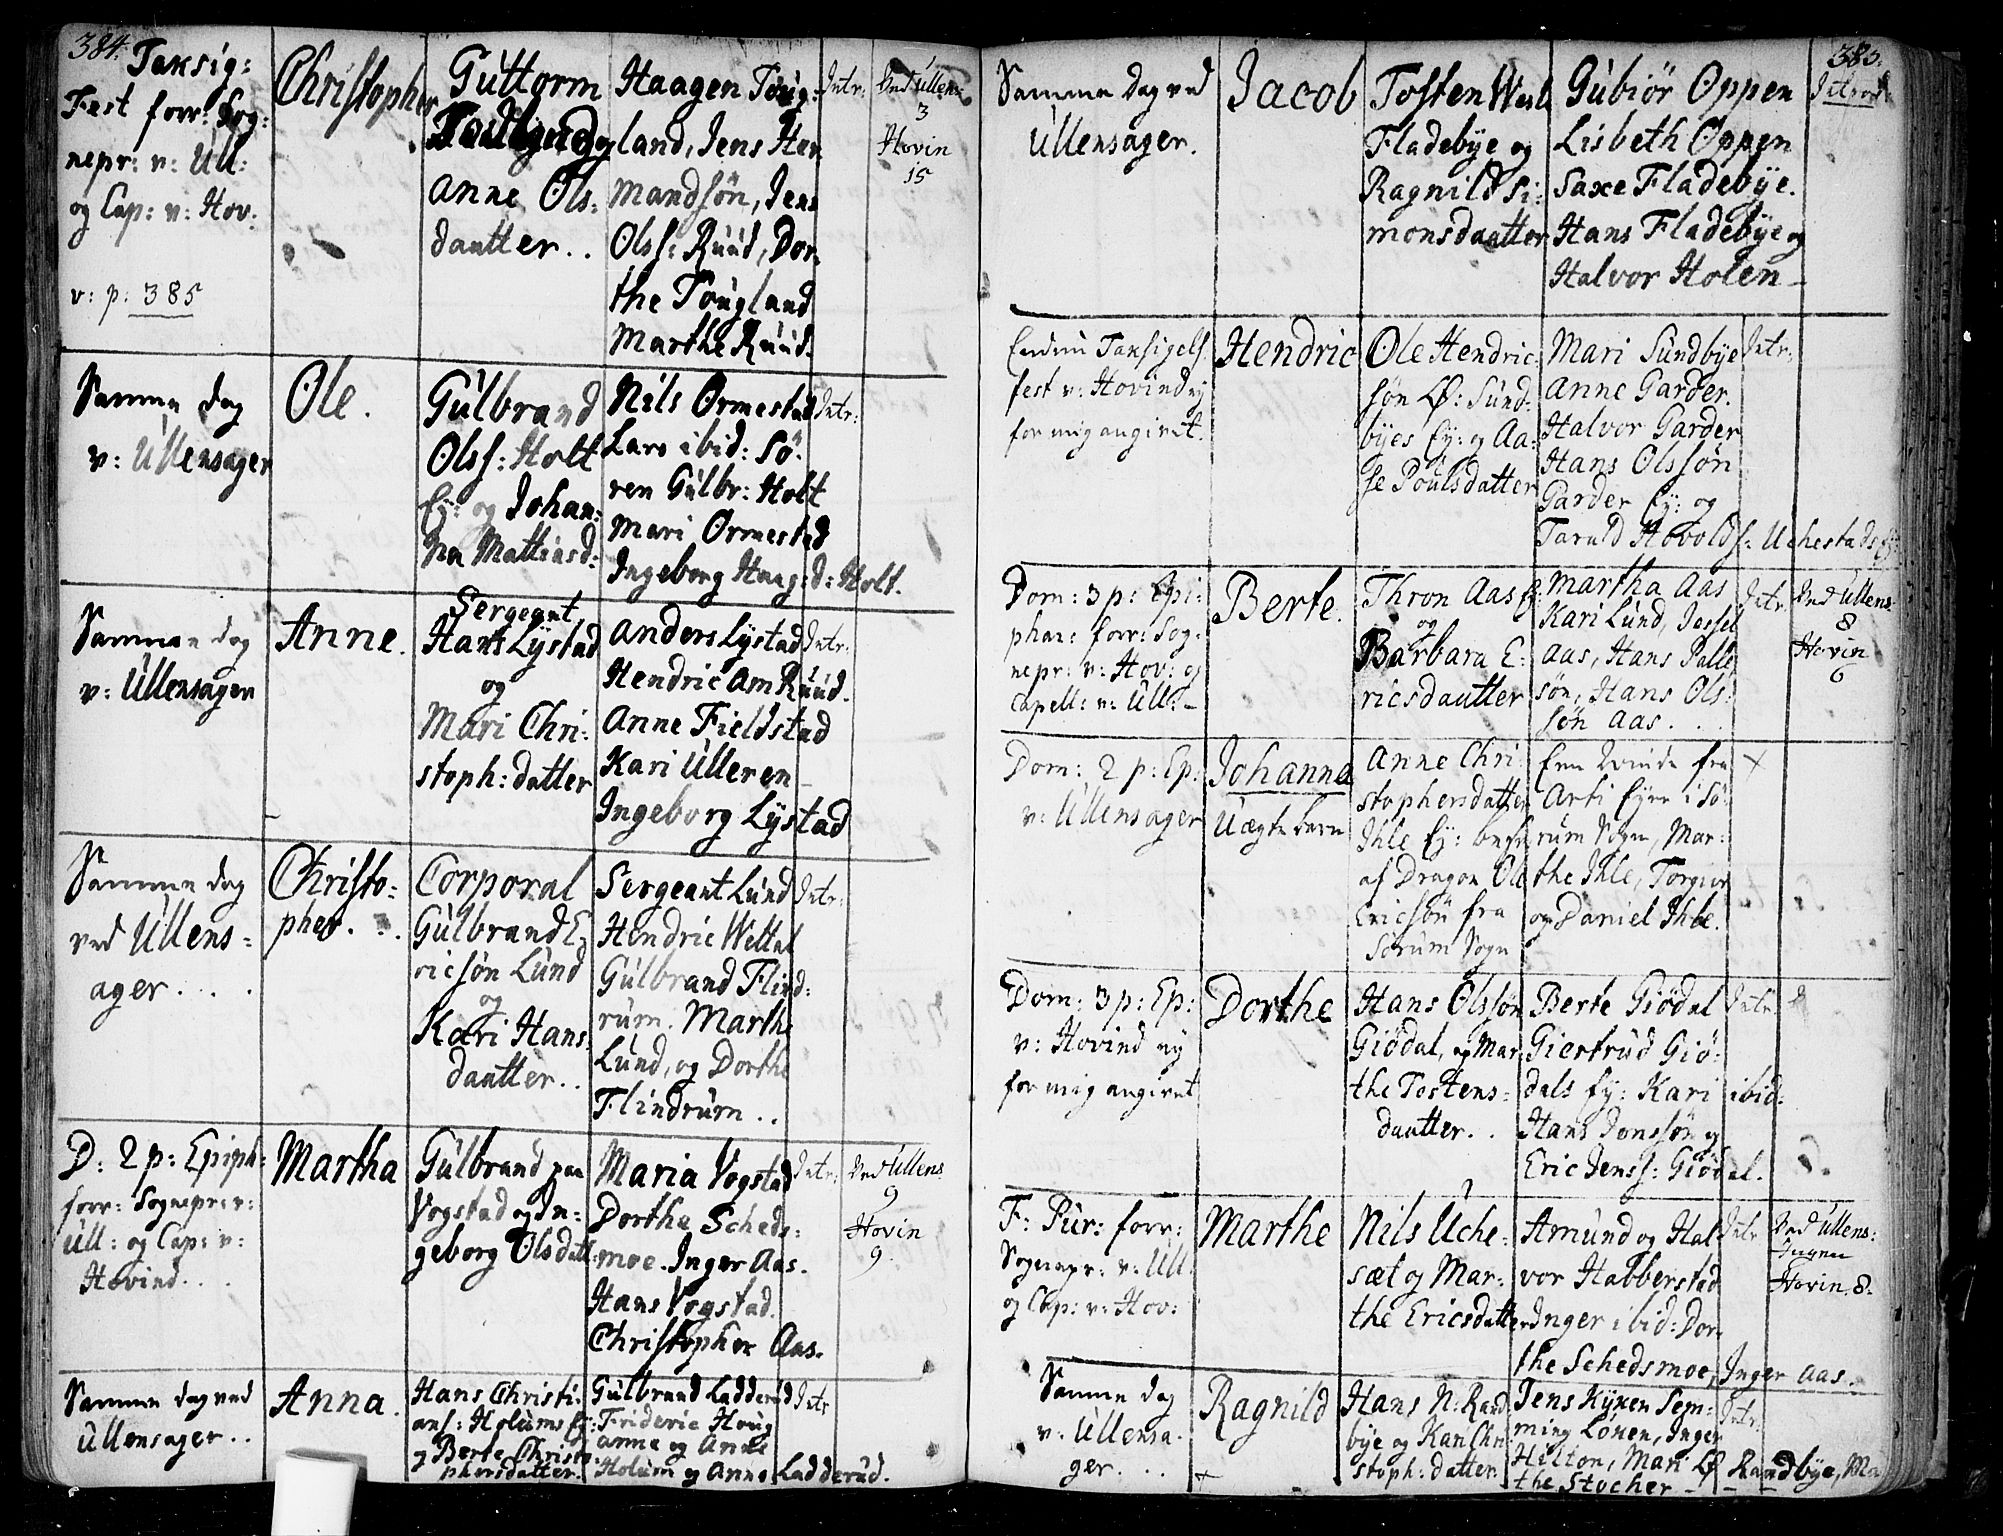 384.
Taksig:
Fest forr: Sog:
nepr: v: Ull:
og Cap: v: Hov:
v: p: 385
Christopher
Guttorm
og
Anne Ols:
daatter..
Haagen Toug:
land, Jens Her
mandsøn, Jens
Olss: Ruud, Dor:
the Tougland
Marthe Ruud.
Intr:
Ved Ullens:
3
Hovin
15
Samme dag
v: Ullensager
Ole.
Gulbrand
Olss: Holt
Ey: og Johan:
na Mattiasd:
Nils Ormestad
Lars ibid: Sø:
ren Gulbr: Holt
Mari Ormestad
Ingeborg Haag:d: Holt.
Intr:
Samme dag
v: Ullensager
Anne.
Sergeant
Hans Lystad
og
Mari Chri:
stoph: datter
Anders Lystad
Hendric Am Ruud.
Anne Fieldstad
Kari Ulleren
Ingeborg Lystad
Intr:
Samme dag
ved Ullens:
ager...
Christo:
pher...
Corporal
Gulbrand E
ricsøn Lund
og
Kari Hans:
daatter..
Sergeant Lund
Hendric Wettal
Gulbrand Flind:
rum. Marthe
Lund, og Dorthe
Flindrum..
Intr:
D: 2 p: Epiph:
forr: Sognepr: v:
Ull: og Cap: v:
Hovind...
Martha
Gulbrand paa
Vogstad og In:
geborg Olsdatt:
Maria Vogstad
Dorthe Scheds:
moe. Inger Aas.
Hans Vogstad.
Christopher Aas.
Intr:
Ved Ullens
9
Hovin
9.
Samme dag ved
Ullensager..
Anna.
Hans Christi:
ans: Holums Ey:
og Berte Christo
phersdatter.
Gulbrand Ladderud
Frideric Houg
Anne og Anne
Holum og Anne Ladderud.
Intr
385.
Samme dag ved
Ullensager.
Jacob
Tosten
Fladebye og
Ragnild Si:
monsdaatter
Gubiör Oppen
Lisbeth Oppen
Saxe Fladebye.
Hans Fladebye og
Halvor Holen
Endnu Taksigels
fest v: Hovind ey
for mig angivet.
Hendric
Ole Hendric:
søn Lø: Sund:
byes Ey: og Aa:
se Poulsdatter
Mari Sundbye
Anne Garder.
Halvor Garder
Hans Olssøn
Garder Ey: og
Tarald Hovolds: Uchestads Ey:
Intr:
Dom: 3 p: Epi:
phan: forr: Sog:
nepr: v: Hov: og
Capell: v: Ull:
Berte.
Thron Aas Ey:
og
Barbara E:
ricsdaatter
Martha Aas
Kari Lund, Jossel
Aas, Hans Palle
søn, Hans Ols:
søn Aas...
Intr:
Ved Ullens:
8
Hovin
6
Dom: 2 p: Ep:
v: Ullensager
Johanna
Uægte barn
Anne Chri:
stophersdatter
Ihle Ey: besk
af Dragon Ole
Ericsøn fra
Sørum Sogn
Een Qvinde fra
Arti Eyer i Sø:
rum Sogn, Mar:
the Ihle, Torgier
og Daniel Ihle.
+
Dom: 3 p: Ep:
v: Hovind ey
for mig angivet
Dorthe
Hans Olssøn
Giödal, og Mar:
the Tostens:
daatter..
Berte Giödal
Giertrud Giö:
dals Ey: Kari ibid:
Hans Jonssøn og
Eric Jenss: Giödal.
Intr:
F: Pur: forr:
Sognepr: v: Ull:
og Cap: v: Hov:
Marthe
Nils Uche:
sæt og Mar:
the Ericsdatter
Amund og Hal
vor Habberstad
Inger ibid: Dor
the Schedsmoe, Inger Aas.
Intr
Ved Ullens:
Ingen
Hovin 8.
Samme dag
v: Ullensa:
ger...
Ragnild
+
Hans N: Rand
bye og Kari Chri
stoph: datter.
Jens Kyxen Sem:
ming Lönen, Inger
Hilton, Mari Lø Randbye, Ma
the Stocher
Intr: